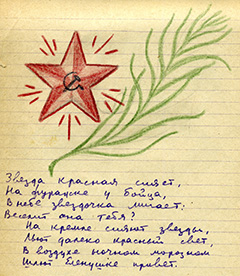 Звезда красная сияет,
На фуражке у бойца,
В небе звездочка мигает.
Веселит она тебя?
На кремле сияют звезды,
Льют далеко красный свет,
В воздухе ночном морозном
Шлют Генушке привет.